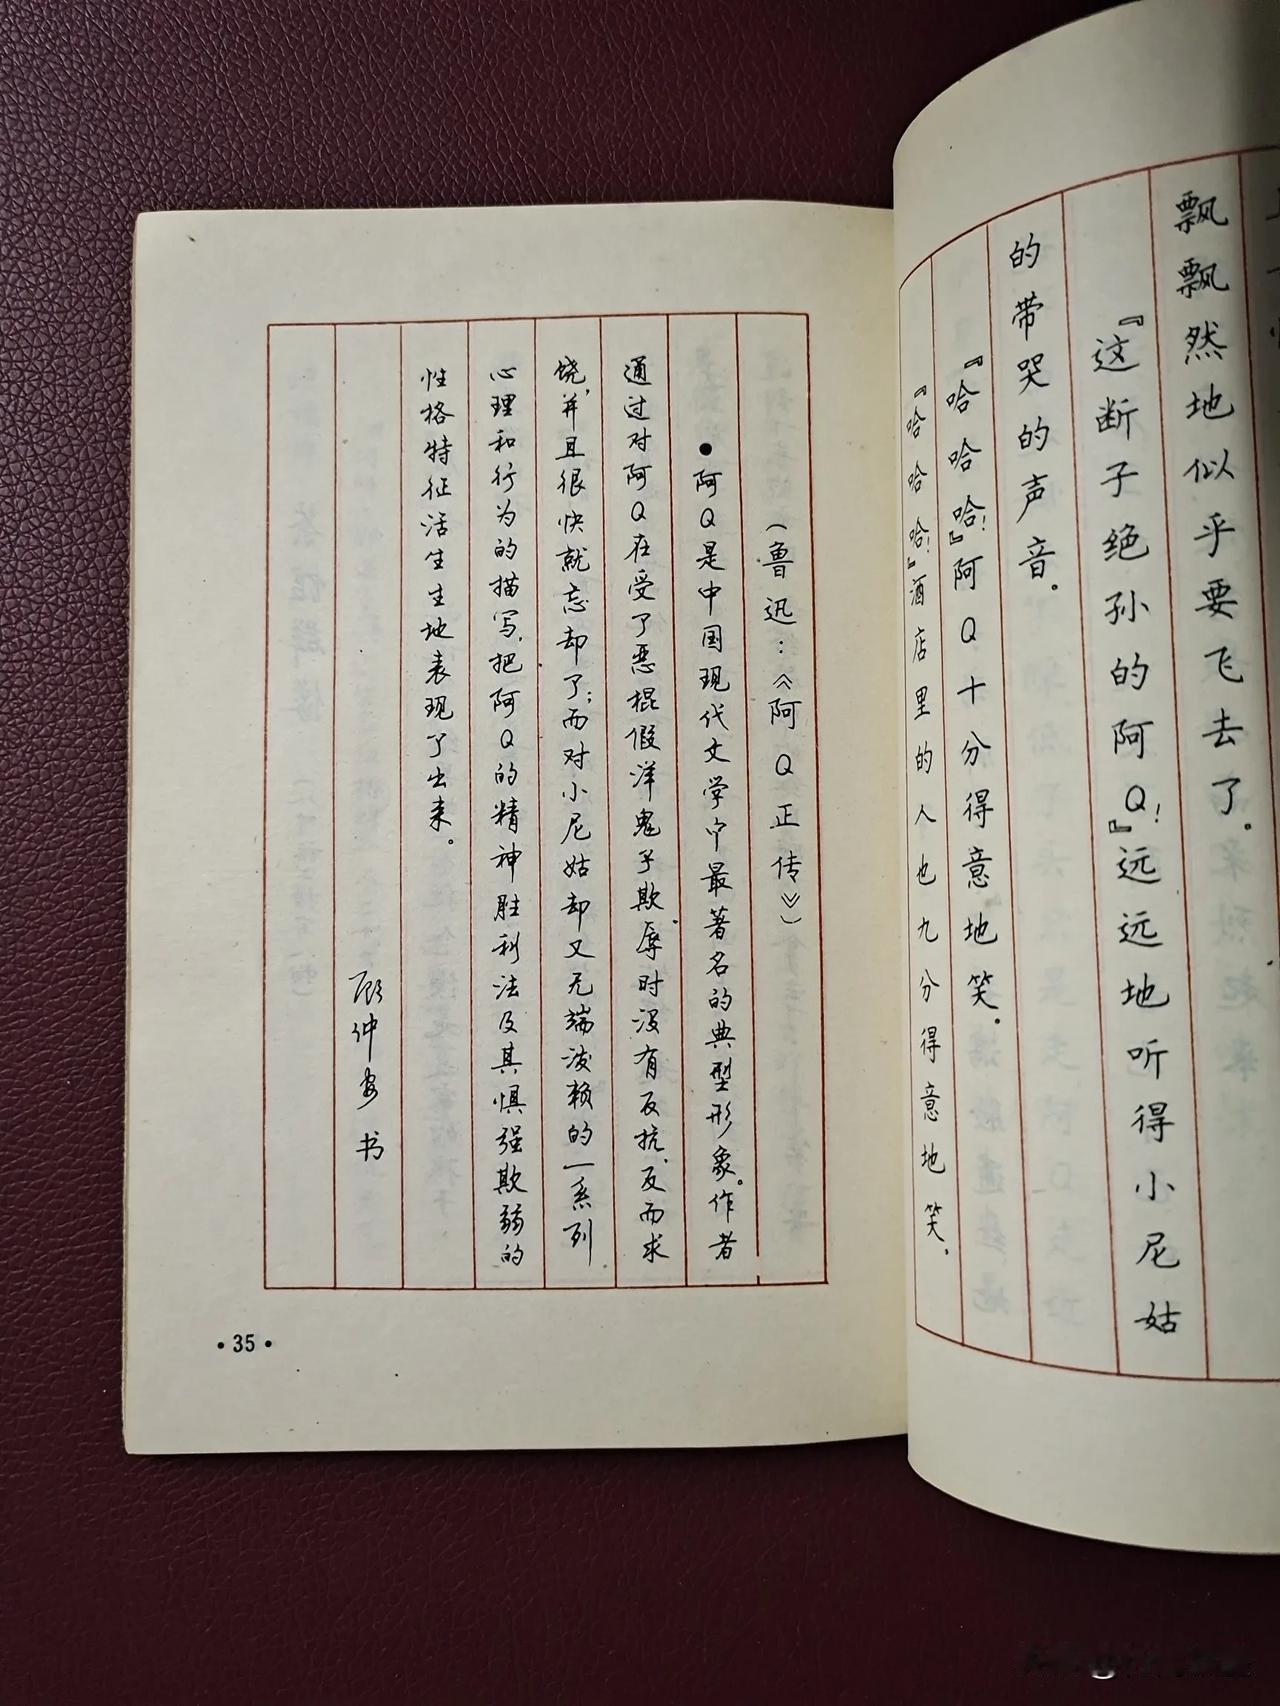 飘飘然地似乎要飞去了。
『这断子绝孙的阿Q！』远远地听得小尼姑
的带哭的声音。
『哈哈哈！』阿Q十分得意地笑。
『哈哈哈！』酒店里的人也九分得意地笑。
（鲁迅：《阿Q正传》）
●阿Q是中国现代文学中最著名的典型形象。作者
通过对阿Q在受了恶棍假洋鬼子欺辱时没有反抗，反而求
饶，并且很快就忘却了；而对小尼姑却又无端泼赖的一系列
心理和行为的描写，把阿Q的精神胜利法及其惧强欺弱的
性格特征活生生地表现了出来。
顾仲安书
•35•